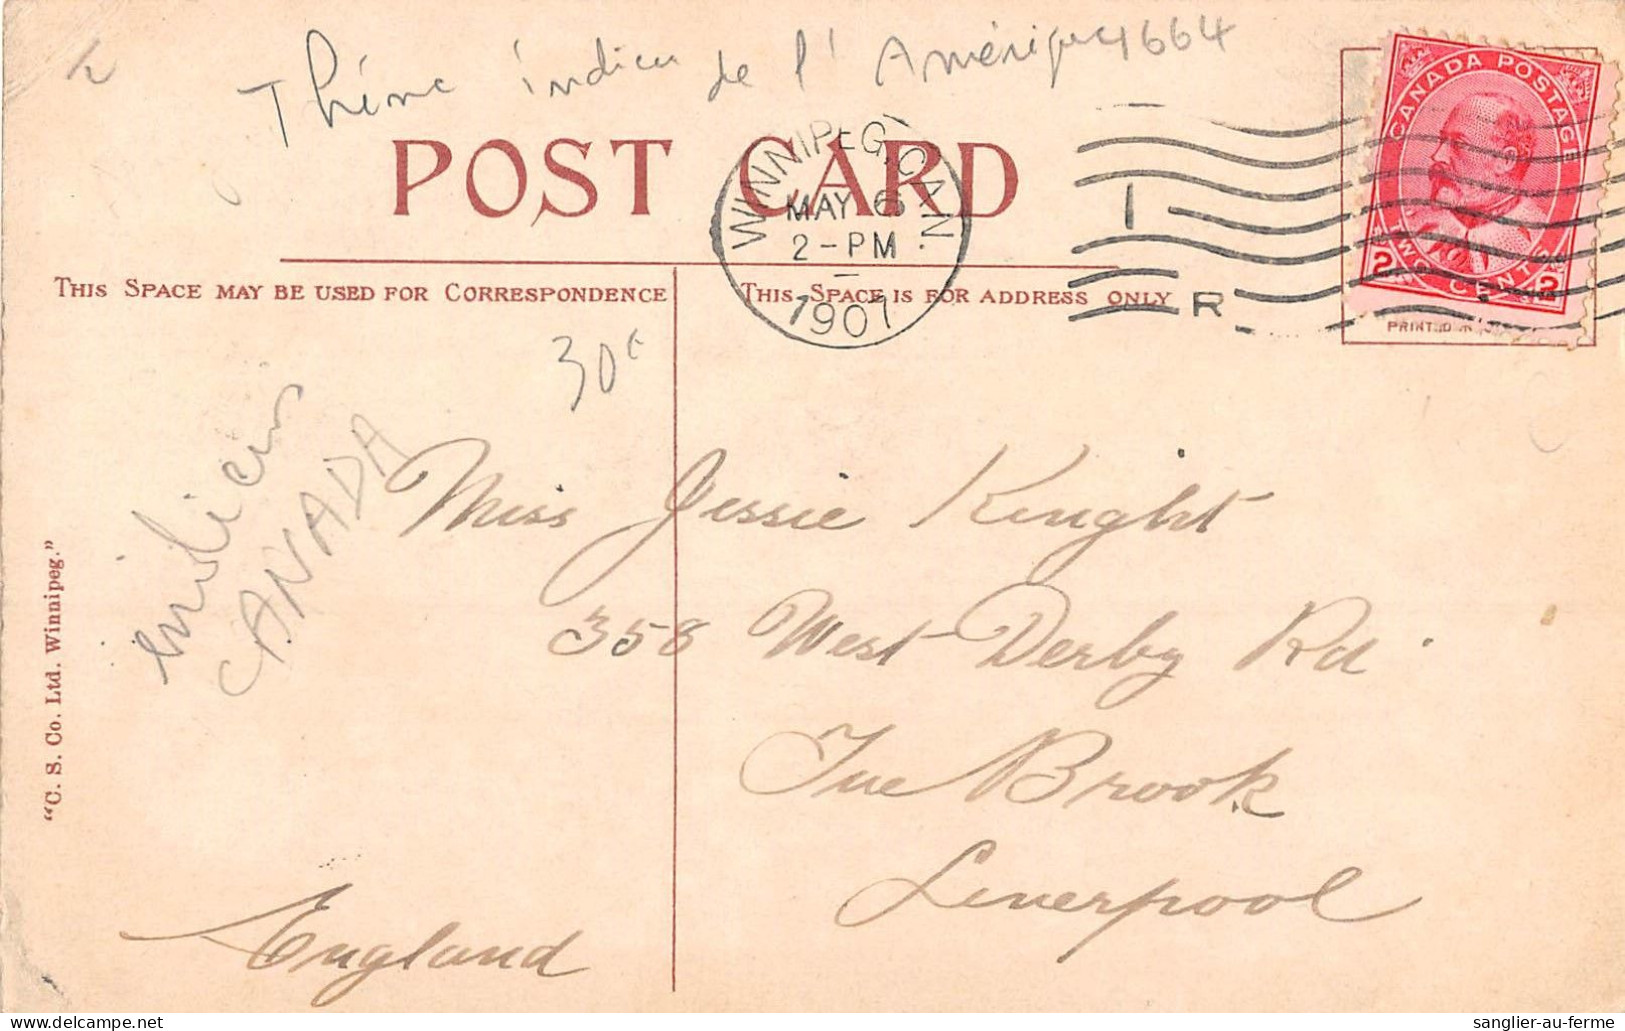 Thème indien de l'Amérique 1664
CANADA POSTAGE
2 TWO CENTS 2
WINNIPEG, CAN.
MAY 6
2-PM
1907
I
R
POST CARD
THIS SPACE MAY BE USED FOR CORRESPONDENCE
THIS SPACE IS FOR ADDRESS ONLY
PRINTED IN
30€
indien
CANADA
Miss Jessie Knight
358 West Derby Rd
Tue Brook
Liverpool
England
"C. S. Co. Ltd. Winnipeg."
sanglier-au-ferme